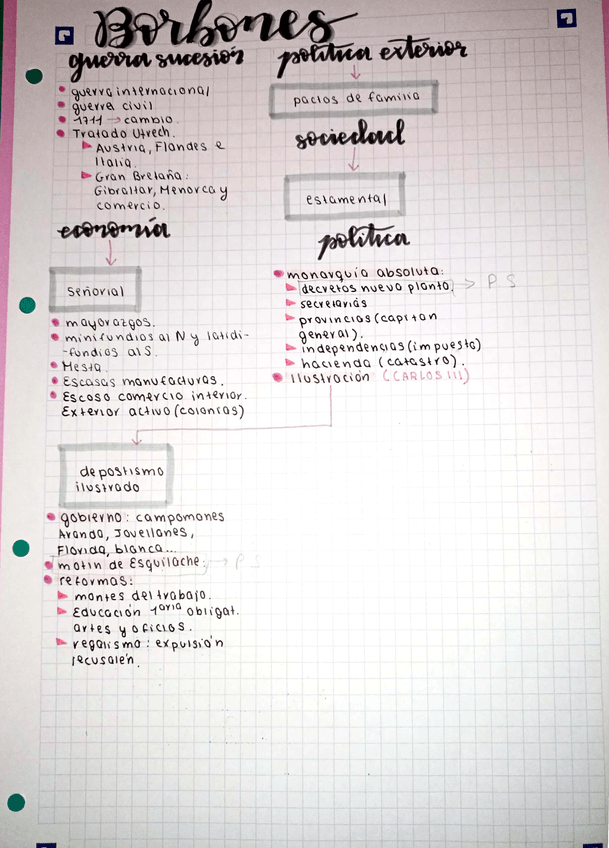 Borbones
guerra sucesión
guerra internacional
guerra civil
1711 → cambio.
Tratado Utrech.
Austria, Flandes e
Italia.
Gran Bretaña:
Gibraltar, Menorca y
comercio.
economía
señorial
mayorazgos.
minifundios al N y latidi-
-fundios al S.
Mesta.
Escasas manufacturas.
Escoso comercio interior.
Exterior activo (colonias)
política exterior
pactos de familia
sociedad
estamental
política
monarquía absoluta:
decretos nueva planta. → P S
secretarias
provincias (capitan
general).
independencias (impuesto)
hacienda (catastro).
Ilustración (CARLOS III)
depostismo
ilustrado
gobierno: campomanes
Aranda, Jovellanes,
Florida, blanca...
motin de Esquilache. → P S
reformas:
montes del trabajo.
Educación 1aria obligat.
artes y oficios.
regalismo: expulsión